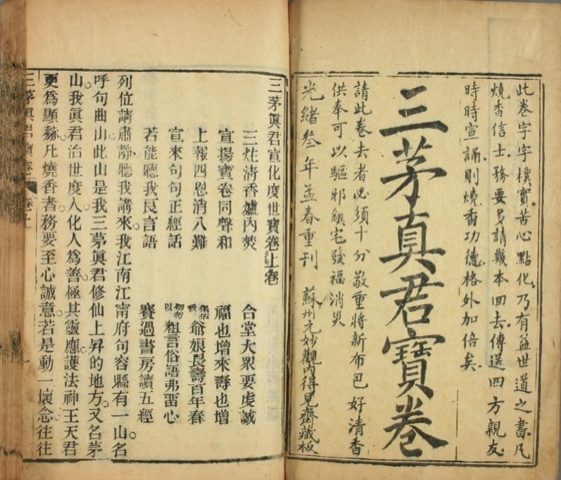 此卷字字樸實苦心點化乃有益世道之書凡
燒香信士務要多請幾本回去傳送四方親友
時時宣誦則燒香功德格外加倍矣
三茅真君寶卷
請此卷去者必須十分敬重將新布巴好清香
供奉可以驅邪鎮宅發福消災
光緒叁年孟春重刊 蘇州元妙觀內得見齋藏板
三茅眞君宣化度世寶卷上卷
三炷清香爐內焚 合堂大衆要虔誠
宣揚寶卷同聲和 福也增來壽也增
上報四恩消八難 爺娘長壽百年春
宣來句句正經話 粗言俗語弗畱心
若能聽我良言語 賽過書房讀五經
列位請肅靜聽我講來我江南江南府句容縣有一山名
呼句曲山此山是我三茅眞君修仙上昇的地方。又名茅
山。我眞君治世度人化人爲善極其靈應護法神王天君
更爲顯赫。凡燒香者務要至心誠意。若是動一壞念往往